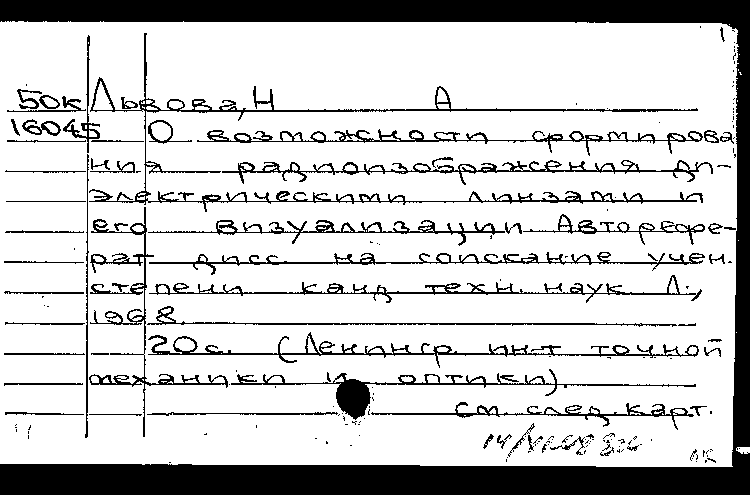 1
50к Львова, Н А
16045 О возможности формирова
ния радиоизображения ди-
электрическими линзами и
его визуализации. Авторефе-
рат дисс. на соискание учен.
степени канд. техн. наук. Л.,
1968.
20 с. (Ленингр. ин-т точной
механики и оптики).
см. след. карт.